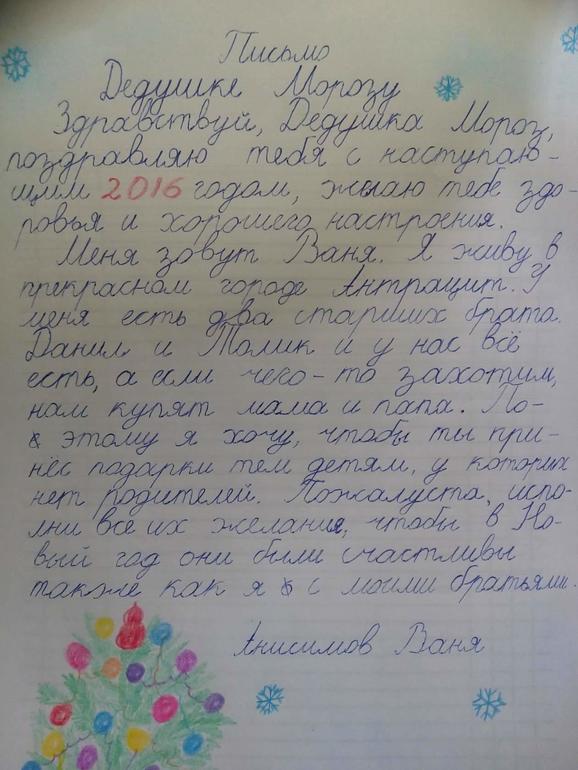 Письмо
Дедушке Морозу
Здравствуй, Дедушка Мороз,
поздравляю тебя с наступаю-
щим 2016 годом, желаю тебе здо-
ровья и хорошего настроения.
Меня зовут Ваня. Я живу в
прекрасном городе Антрацит. У
меня есть два старших брата.
Данил и Толик и у нас всё
есть, а если чего-то захотим,
нам купят мама и папа. По-
этому я хочу, чтобы ты при-
нёс подарки тем детям, у которых
нет родителей. Пожалуста, испо-
лни все их желание, чтобы в Но-
вый год они были счастливы
также как я с моими братьями.
Анисимов Ваня